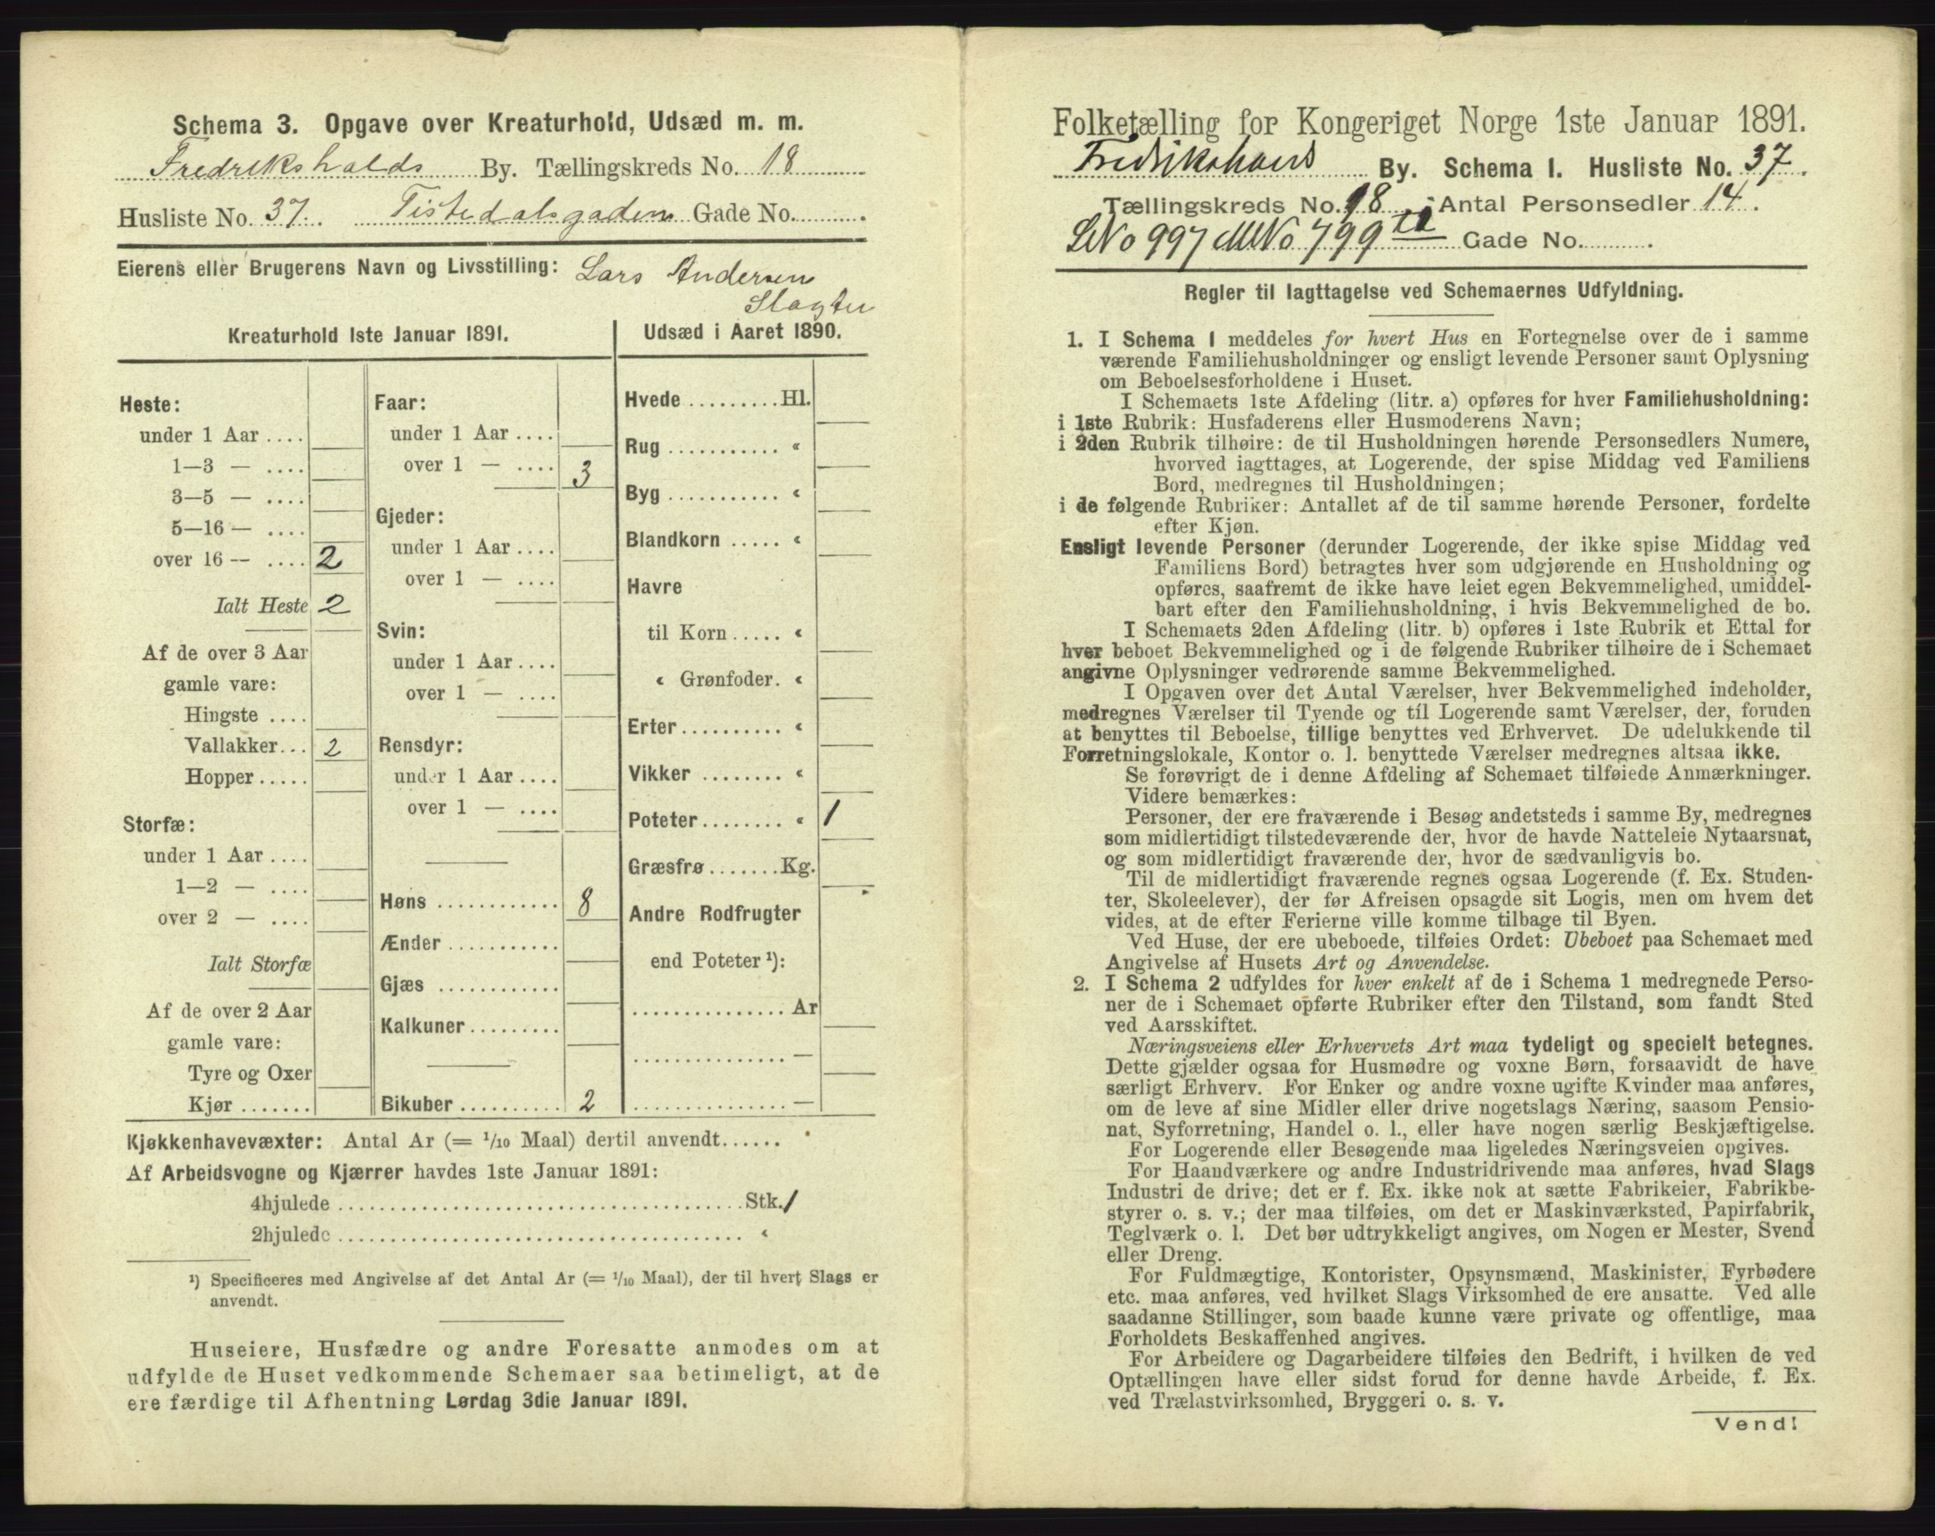 Schema 3. Opgave over Kreaturhold, Udsæd m. m.
Fredrikshalds By. Tællingskreds No. 18
Husliste No. 37. Tistedalsgaden Gade No.
Eierens eller Brugerens Navn og Livsstilling: Lars Andersen
Slagter
Kreaturhold 1ste Januar 1891.
Heste:
under 1 Aar ....
1—3 — ....
3—5 — ....
5—16 — ....
over 16 — .... 2
Ialt Heste 2
Af de over 3 Aar
gamle vare:
Hingste ....
Vallakker... 2
Hopper .....
Storfæ:
under 1 Aar ....
1—2 — ....
over 2 — ....
Ialt Storfæ
Af de over 2 Aar
gamle vare:
Tyre og Oxer
Kjør .......
Faar:
under 1 Aar ....
over 1 — .... 3
Gjeder:
under 1 Aar ....
over 1 — ....
Svin:
under 1 Aar ....
over 1 — ....
Rensdyr:
under 1 Aar ....
over 1 — ....
Høns ............ 8
Ænder ...........
Gjæs ............
Kalkuner .........
Bikuber .......... 2
Udsæd i Aaret 1890.
Hvede .........Hl.
Rug ........... «
Byg ........... «
Blandkorn ..... «
Havre
til Korn ..... «
« Grønfoder. «
Erter .......... «
Vikker ........ «
Poteter........ « 1
Græsfrø .......Kg.
Andre Rodfrugter
end Poteter ¹):
............... Ar
............... —
............... —
Kjøkkenhavevæxter: Antal Ar (= 1/10 Maal) dertil anvendt......
Af Arbeidsvogne og Kjærrer havdes 1ste Januar 1891:
4hjulede ....................................... Stk. 1
2hjulede ....................................... «
¹) Specificeres med Angivelse af det Antal Ar (= 1/10 Maal), der til hvert Slags er
anvendt.
Huseiere, Husfædre og andre Foresatte anmodes om at
udfylde de Huset vedkommende Schemaer saa betimeligt, at de
ere færdige til Afhentning Lørdag 3die Januar 1891.
Folketælling for Kongeriget Norge 1ste Januar 1891.
Fredrikshalds By. Schema 1. Husliste No. 37.
Tællingskreds No. 18. Antal Personsedler 14.
No 997 No 799 Gade No. .
Regler til Iagttagelse ved Schemaernes Udfyldning.
1. I Schema 1 meddeles for hvert Hus en Fortegnelse over de i samme
værende Familiehusholdninger og ensligt levende Personer samt Oplysning
om Beboelsesforholdene i Huset.
I Schemaets 1ste Afdeling (litr. a) opføres for hver Familiehusholdning:
i 1ste Rubrik: Husfaderens eller Husmoderens Navn;
i 2den Rubrik tilhøire: de til Husholdningen hørende Personsedlers Numere,
hvorved iagttages, at Logerende, der spise Middag ved Familiens
Bord, medregnes til Husholdningen;
i de følgende Rubriker: Antallet af de til samme hørende Personer, fordelte
efter Kjøn.
Ensligt levende Personer (derunder Logerende, der ikke spise Middag ved
Familiens Bord) betragtes hver som udgjørende en Husholdning og
opføres, saafremt de ikke have leiet egen Bekvemmelighed, umiddel-
bart efter den Familiehusholdning, i hvis Bekvemmelighed de bo.
I Schemaets 2den Afdeling (litr. b) opføres i 1ste Rubrik et Ettal for
hver beboet Bekvemmelighed og i de følgende Rubriker tilhøire de i Schemaet
angivne Oplysninger vedrørende samme Bekvemmelighed.
I Opgaven over det Antal Værelser, hver Bekvemmelighed indeholder,
medregnes Værelser til Tyende og til Logerende samt Værelser, der, foruden
at benyttes til Beboelse, tillige benyttes ved Erhvervet. De udelukkende til
Forretningslokale, Kontor o. l. benyttede Værelser medregnes altsaa ikke.
Se forøvrigt de i denne Afdeling af Schemaet tilføiede Anmærkninger.
Videre bemærkes:
Personer, der ere fraværende i Besøg andetsteds i samme By, medregnes
som midlertidigt tilstedeværende der, hvor de havde Natteleie Nytaarsnat,
og som midlertidigt fraværende der, hvor de sædvanligvis bo.
Til de midlertidigt fraværende regnes ogsaa Logerende (f. Ex. Studen-
ter, Skoleelever), der før Afreisen opsagde sit Logis, men om hvem det
vides, at de efter Ferierne ville komme tilbage til Byen.
Ved Huse, der ere ubeboede, tilføies Ordet: Ubeboet paa Schemaet med
Angivelse af Husets Art og Anvendelse.
2. I Schema 2 udfyldes for hver enkelt af de i Schema 1 medregnede Perso-
ner de i Schemaet opførte Rubriker efter den Tilstand, som fandt Sted
ved Aarsskiftet.
Næringsveiens eller Erhvervets Art maa tydeligt og specielt betegnes.
Dette gjælder ogsaa for Husmødre og voxne Børn, forsaavidt de have
særligt Erhverv. For Enker og andre voxne ugifte Kvinder maa anføres,
om de leve af sine Midler eller drive nogetslags Næring, saasom Pensio-
nat, Syforretning, Handel o. l., eller have nogen særlig Beskjæftigelse.
For Logerende eller Besøgende maa ligeledes Næringsveien opgives.
For Haandværkere og andre Industridrivende maa anføres, hvad Slags
Industri de drive; det er f. Ex. ikke nok at sætte Fabrikeier, Fabrikbe-
styrer o. s. v.; der maa tilføies, om det er Maskinværksted, Papirfabrik,
Teglværk o. l. Det bør udtrykkeligt angives, om Nogen er Mester, Svend
eller Dreng.
For Fuldmægtige, Kontorister, Opsynsmænd, Maskinister, Fyrbødere
etc. maa anføres, ved hvilket Slags Virksomhed de ere ansatte. Ved alle
saadanne Stillinger, som baade kunne være private og offentlige, maa
Forholdets Beskaffenhed angives.
For Arbeidere og Dagarbeidere tilføies den Bedrift, i hvilken de ved
Optællingen have eller sidst forud for denne havde Arbeide, f. Ex.
ved Trælastvirksomhed, Bryggeri o. s. v.
Vend!